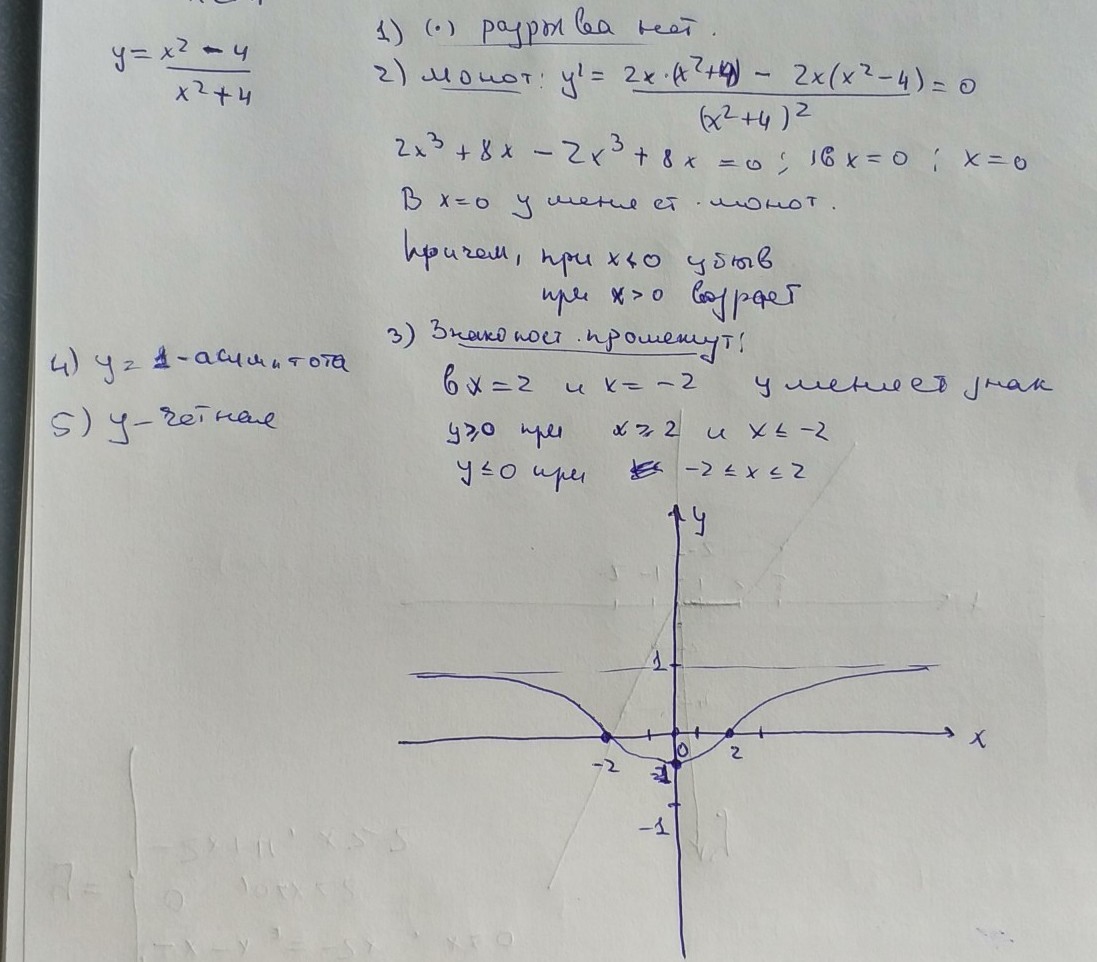 y = (x² - 4)/(x² + 4)
1) (·) разрыва нет.
2) монот: y' = (2x·(x²+4) - 2x(x²-4))/(x²+4)² = 0
2x³ + 8x - 2x³ + 8x = 0 ; 16x = 0 ; x = 0
В x=0 y меняет монот.
Причем, при x<0 убыв
при x>0 возраст
3) Знакопост. промежут:
в x = 2 и x = -2 y меняет знак
y≥0 при x ≥ 2 и x ≤ -2
y ≤ 0 при -2 ≤ x ≤ 2
4) y = 1 - асимптота
5) y - четная
y
1
x
-2
0
2
-1
-1